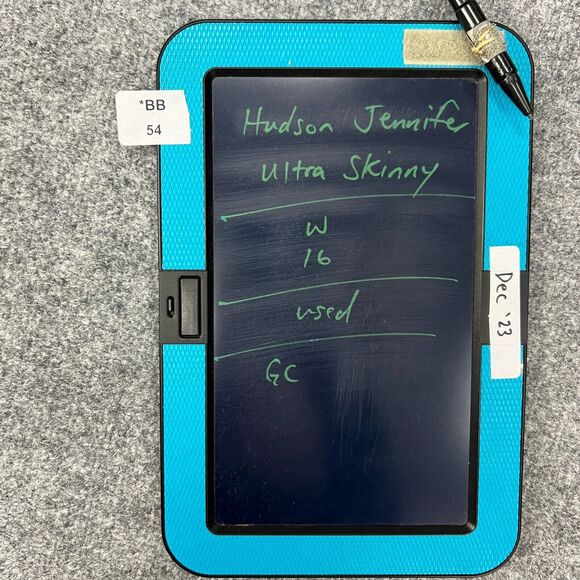 *BB
54
Hudson Jennifer
Ultra Skinny
W
16
used
GC
Dec '23